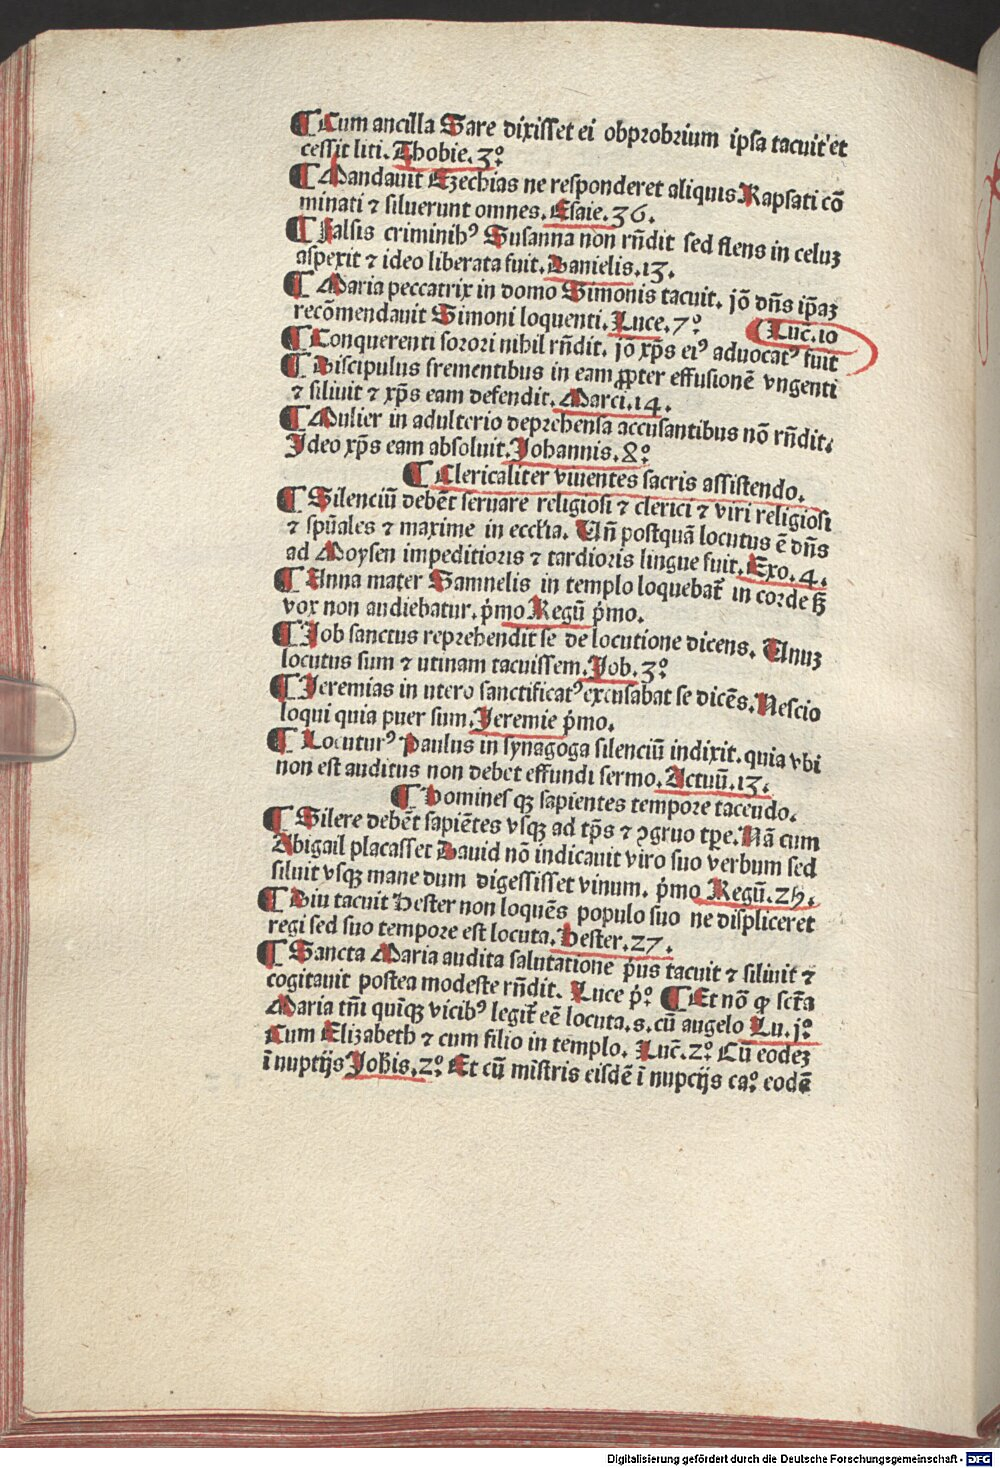 ¶ Cum ancilla Sare dixisset ei obprobrium ipsa tacuit et
cessit liti. Thobie. 3º
¶ Mandauit Ezechias ne responderet aliquis Rapsati cō
minati ⁊ siluerunt omnes. Esaie. 36.
¶ Falsis criminibꝰ Susanna non rñdit sed flens in celuꝫ
aspexit ⁊ ideo liberata fuit. Danielis. 13.
¶ Maria peccatrix in domo Simonis tacuit. jō dñs ip̄aꝫ
recōmendauit Simoni loquenti. Luce. 7º
(Luc̄. 10
¶ Conquerenti sorori nihil rñdit. jō xp̄s eiꝰ aduocatꝰ fuit
¶ Discipulus frementibus in eam ꝓpter effusionē vngenti
⁊ siliuit ⁊ xp̄s eam defendit. Marci. 14.
¶ Mulier in adulterio deprehensa accusantibus nō rñdit.
Ideo xp̄s eam absoluit. Johannis. 8º
¶ Clericaliter viuentes sacris assistendo.
¶ Silenciū debēt seruare religiosi ⁊ clerici ⁊ viri religiosi
⁊ spūales ⁊ maxime in eccľia. Uñ postquā locutus ē dñs
ad Moysen impeditioris ⁊ tardioris lingue fuit. Exo. 4.
¶ Anna mater Samnelis in templo loquebat᷑ in corde sꝫ
vox non audiebatur. p̓mo Regū p̓mo.
¶ Job sanctus reprehendit se de locutione dicens. Unuꝫ
locutus sum ⁊ utinam tacuissem. Job. 3º
¶ Jeremias in utero sanctificatꝰ excusabat se dicēs. Nescio
loqui quia puer sum. Jeremie p̓mo.
¶ Locuturꝰ Paulus in synagoga silenciū indixit. quia vbi
non est auditus non debet effundi sermo. Actuū. 13.
¶ Homines qꝫ sapientes tempore tacendo.
¶ Silere debēt sapiētes vsqꝫ ad tp̄s ⁊ ꝯgruo tp̄e. Nā cum
Abigail placasset Dauid nō indicauit viro suo verbum sed
siluit vsqꝫ mane dum digessisset vinum. p̓mo Regū. 25.
¶ Diu tacuit Hester non loquēs populo suo ne displiceret
regi sed suo tempore est locuta. Hester. 27.
¶ Sancta Maria audita salutatione p̓us tacuit ⁊ siliuit ⁊
cogitauit postea modeste rñdit. Luce p̓º ¶ Et nō ꝙ sct̄a
Maria tm̄ quīqꝫ vicibꝰ legit᷑ eē locuta. s. cū angelo Lu. jº
Cum Elizabeth ⁊ cum filio in templo. Luc̄. 2º Cū eodeꝫ
ī nuptijs Joh̄is. 2º Et cū mīstris eisdē ī nupcijs caº eodē